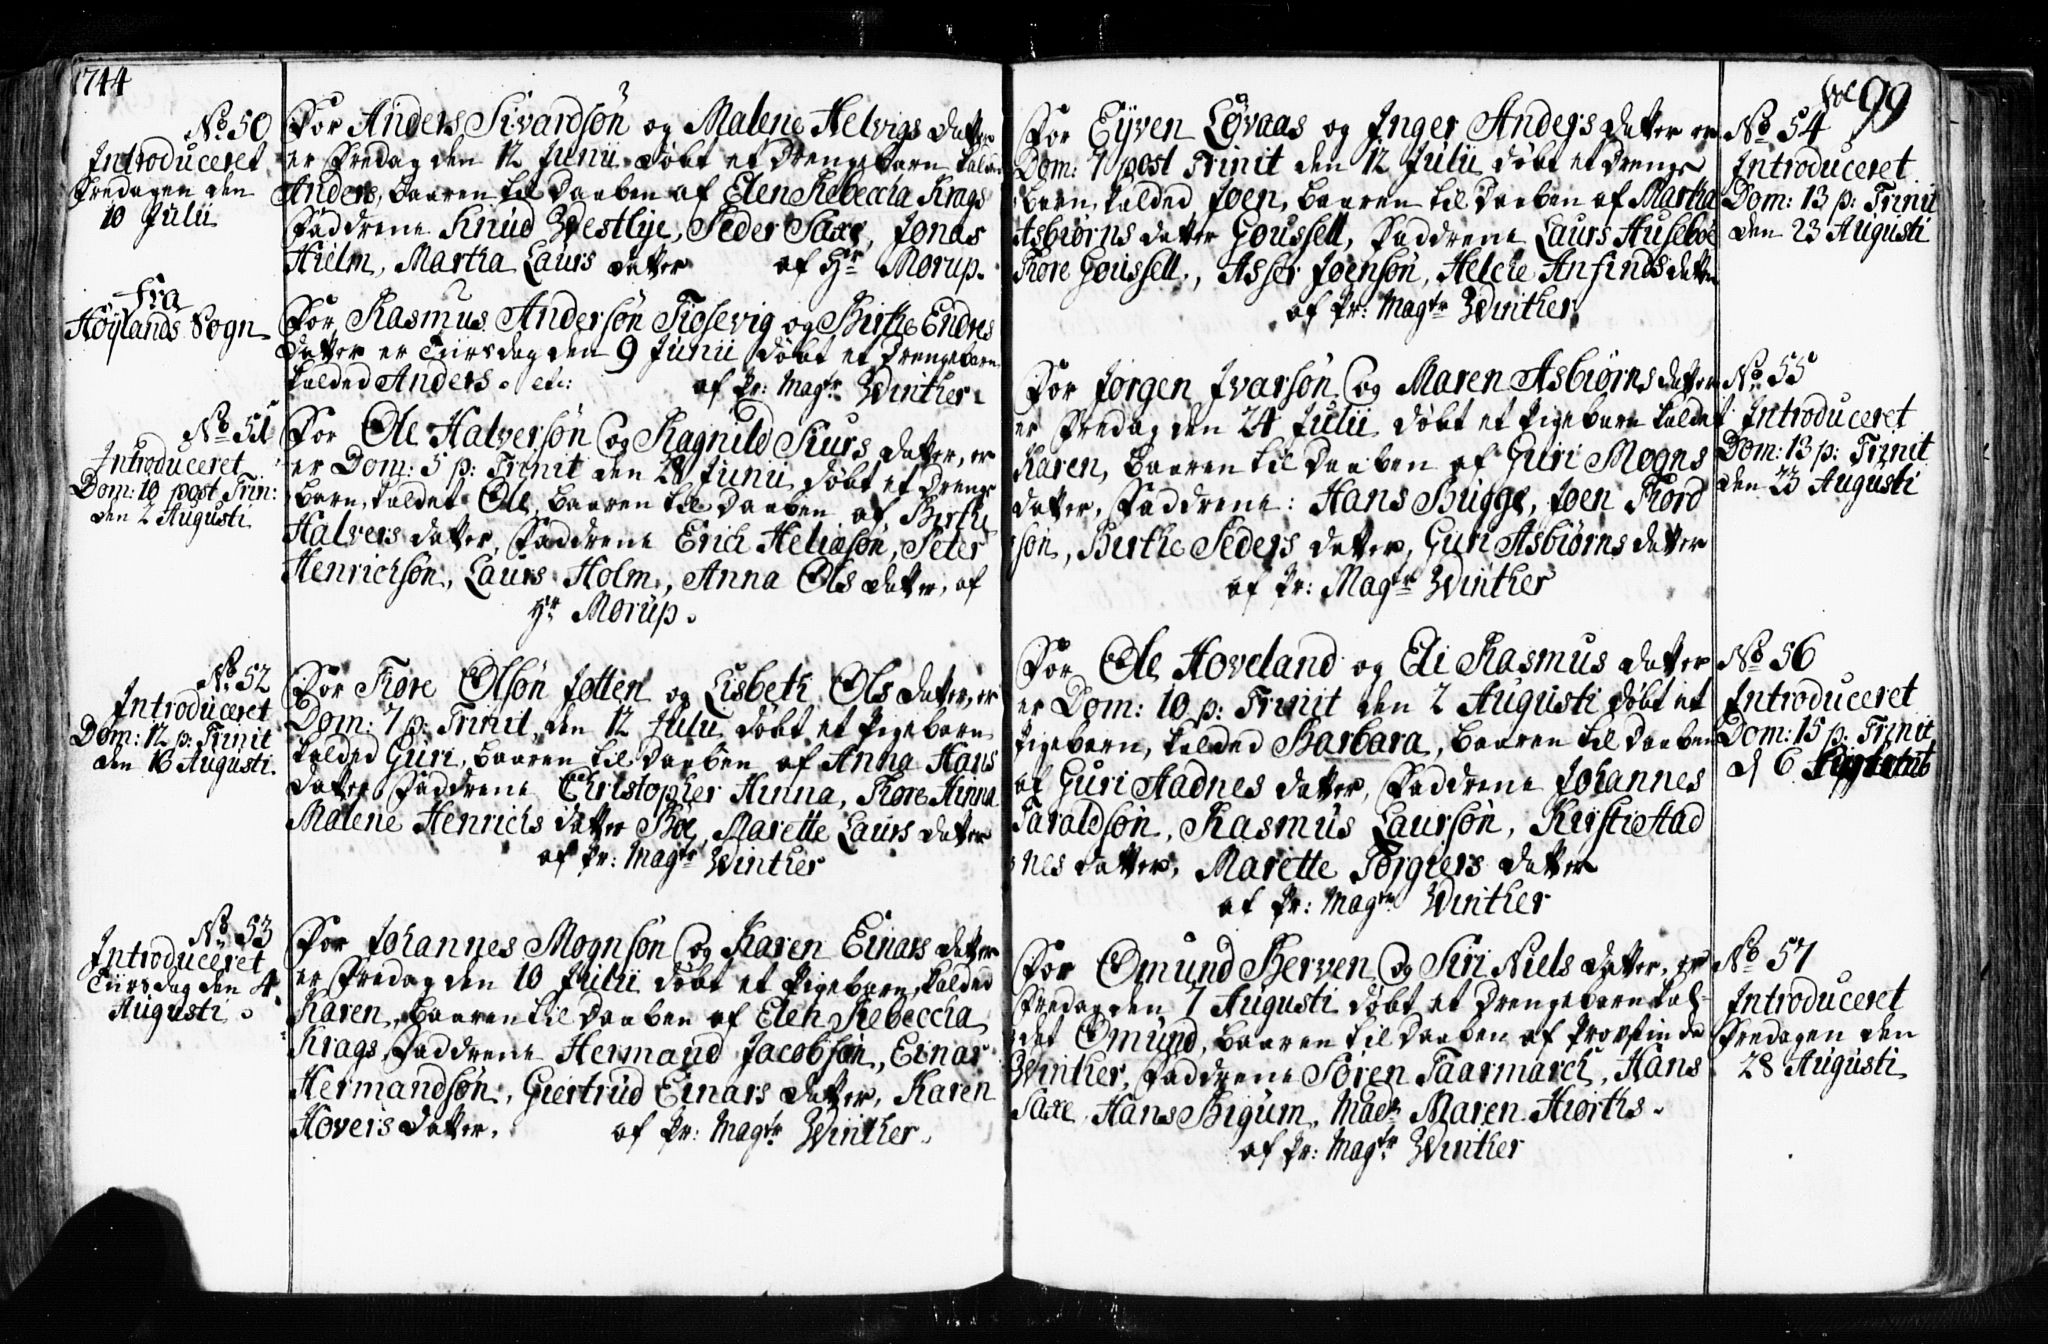 1744
No 50
Introduceret
Fredagen den
10 Julii
For Anders Sivardsøn og Malene Helvigs datter
er Fredag den 12 Junii døbt et drengebarn kaldet
Anders, baaren til daaben af Elen Rebeccha Krags
Faddrene Knud Westlye, Peder Saxe, Jonas
Hielm, Martha Laurs datter af Hr Morup.
fra
Høylands Sogn
For Rasmus Andersøn Tiosevig og Birthe Endres
datter er Tiirsdag den 9 Junii døbt et drengebarn
kalded Anders. etc: af Pr: Magtr Winther.
No 51
Introduceret
Dom: 10 post Trin:
den 2 Augusti
For Ole Halversøn og Ragnild Siurs datter, er
er Dom: 5 p: Trinit den 28 Junii døbt et drenge
barn, kaldet Ole, baaren til daaben af Birthe
Halvers datter, Faddrene Erich Heliasøn, Peter
Henrichsøn, Laurs Holm, Anna Ols datter, af
Hr Morup.
No 52
Introduceret
Dom: 12 p: Trinit
den 16 Augusti.
For Tiøre Olsøn Jøtten og Lisbeth Ols datter, er
Dom: 7 p: Trinit, den 12 Julii døbt et Pigebarn
kalded Guri, baaren til daaben af Anna Hans
datter Faddrene Christopher Hinna, Tiøre Hinna
Malene Henrichs datter Bøe, Marette Laurs datter
af Pr: Magtr Winther
No 53
Introduceret
Tiirsdag den 4
Augusti.
For Johannes Mognsøn og Karen Einars datter
er Fredag den 10 Julii døbt et Pigebarn, kalded
Karen, baaren til daaben af Elen Rebeccha
Krags, Faddrene Hermand Jacobsøn, Einar
Hermandsøn, Giertrud Einars datter, Karen
Hovers datter. af Pr: Magtr Winther.
fol 99
For Eÿven Løvaas og Inger Anders datter er
Dom: 7 post Trinit den 12 Julii døbt et drenge
barn, kalded Joen, baaren til daaben af Martha
Asbiørns datter Goussell, Faddrene Laurs Husebøe
Tiøre Goussell, Asser Joensøn, Helche Anfinds datter
af Pr: Magtr Winther
No 54
Introduceret
Dom: 13 p: Trinit
den 23 Augusti
For Jørgen Ivarsøn og Maren Asbiørns datter
er Fredag den 24 Julii døbt et Pigebarn kaldet
Karen, baaren til daaben af Guri Mogns
datter, Faddrene: Hans Bugge, Joen Tiord
søn, Birthe Peders datter, Guri Asbiørns datter
af Pr: Magtr Winther
No 55
Introduceret
Dom: 13 p: Trinit
den 23 Augusti
For Ole Hoveland og Eli Rasmus datter
er Dom: 10 p: Trinit den 2 Augusti døbt et
Pigebarn, kalded Barbara, baaren til daaben
af Guri Aadnes datter, Faddrene Johannes
Taraldsøn, Rasmus Laursøn, Kirsti Aad
nes datter, Marette Torgiers datter
af Pr: Magtr Winther
No 56
Introduceret
Dom: 15 p: Trinit
d 6
For Omund Berven og Siri Niels datter, er
Fredag den 7 Augusti døbt et drengebarn kal-
det Omund, baaren til daaben af Provstinde
Winther, Faddrene Søren Taarmarck, Hans
Saxe, Hans Bigum, Madm Maren Hiorths.
af Pr: Magtr Winther
No 57
Introduceret
Fredagen den
28 Augusti